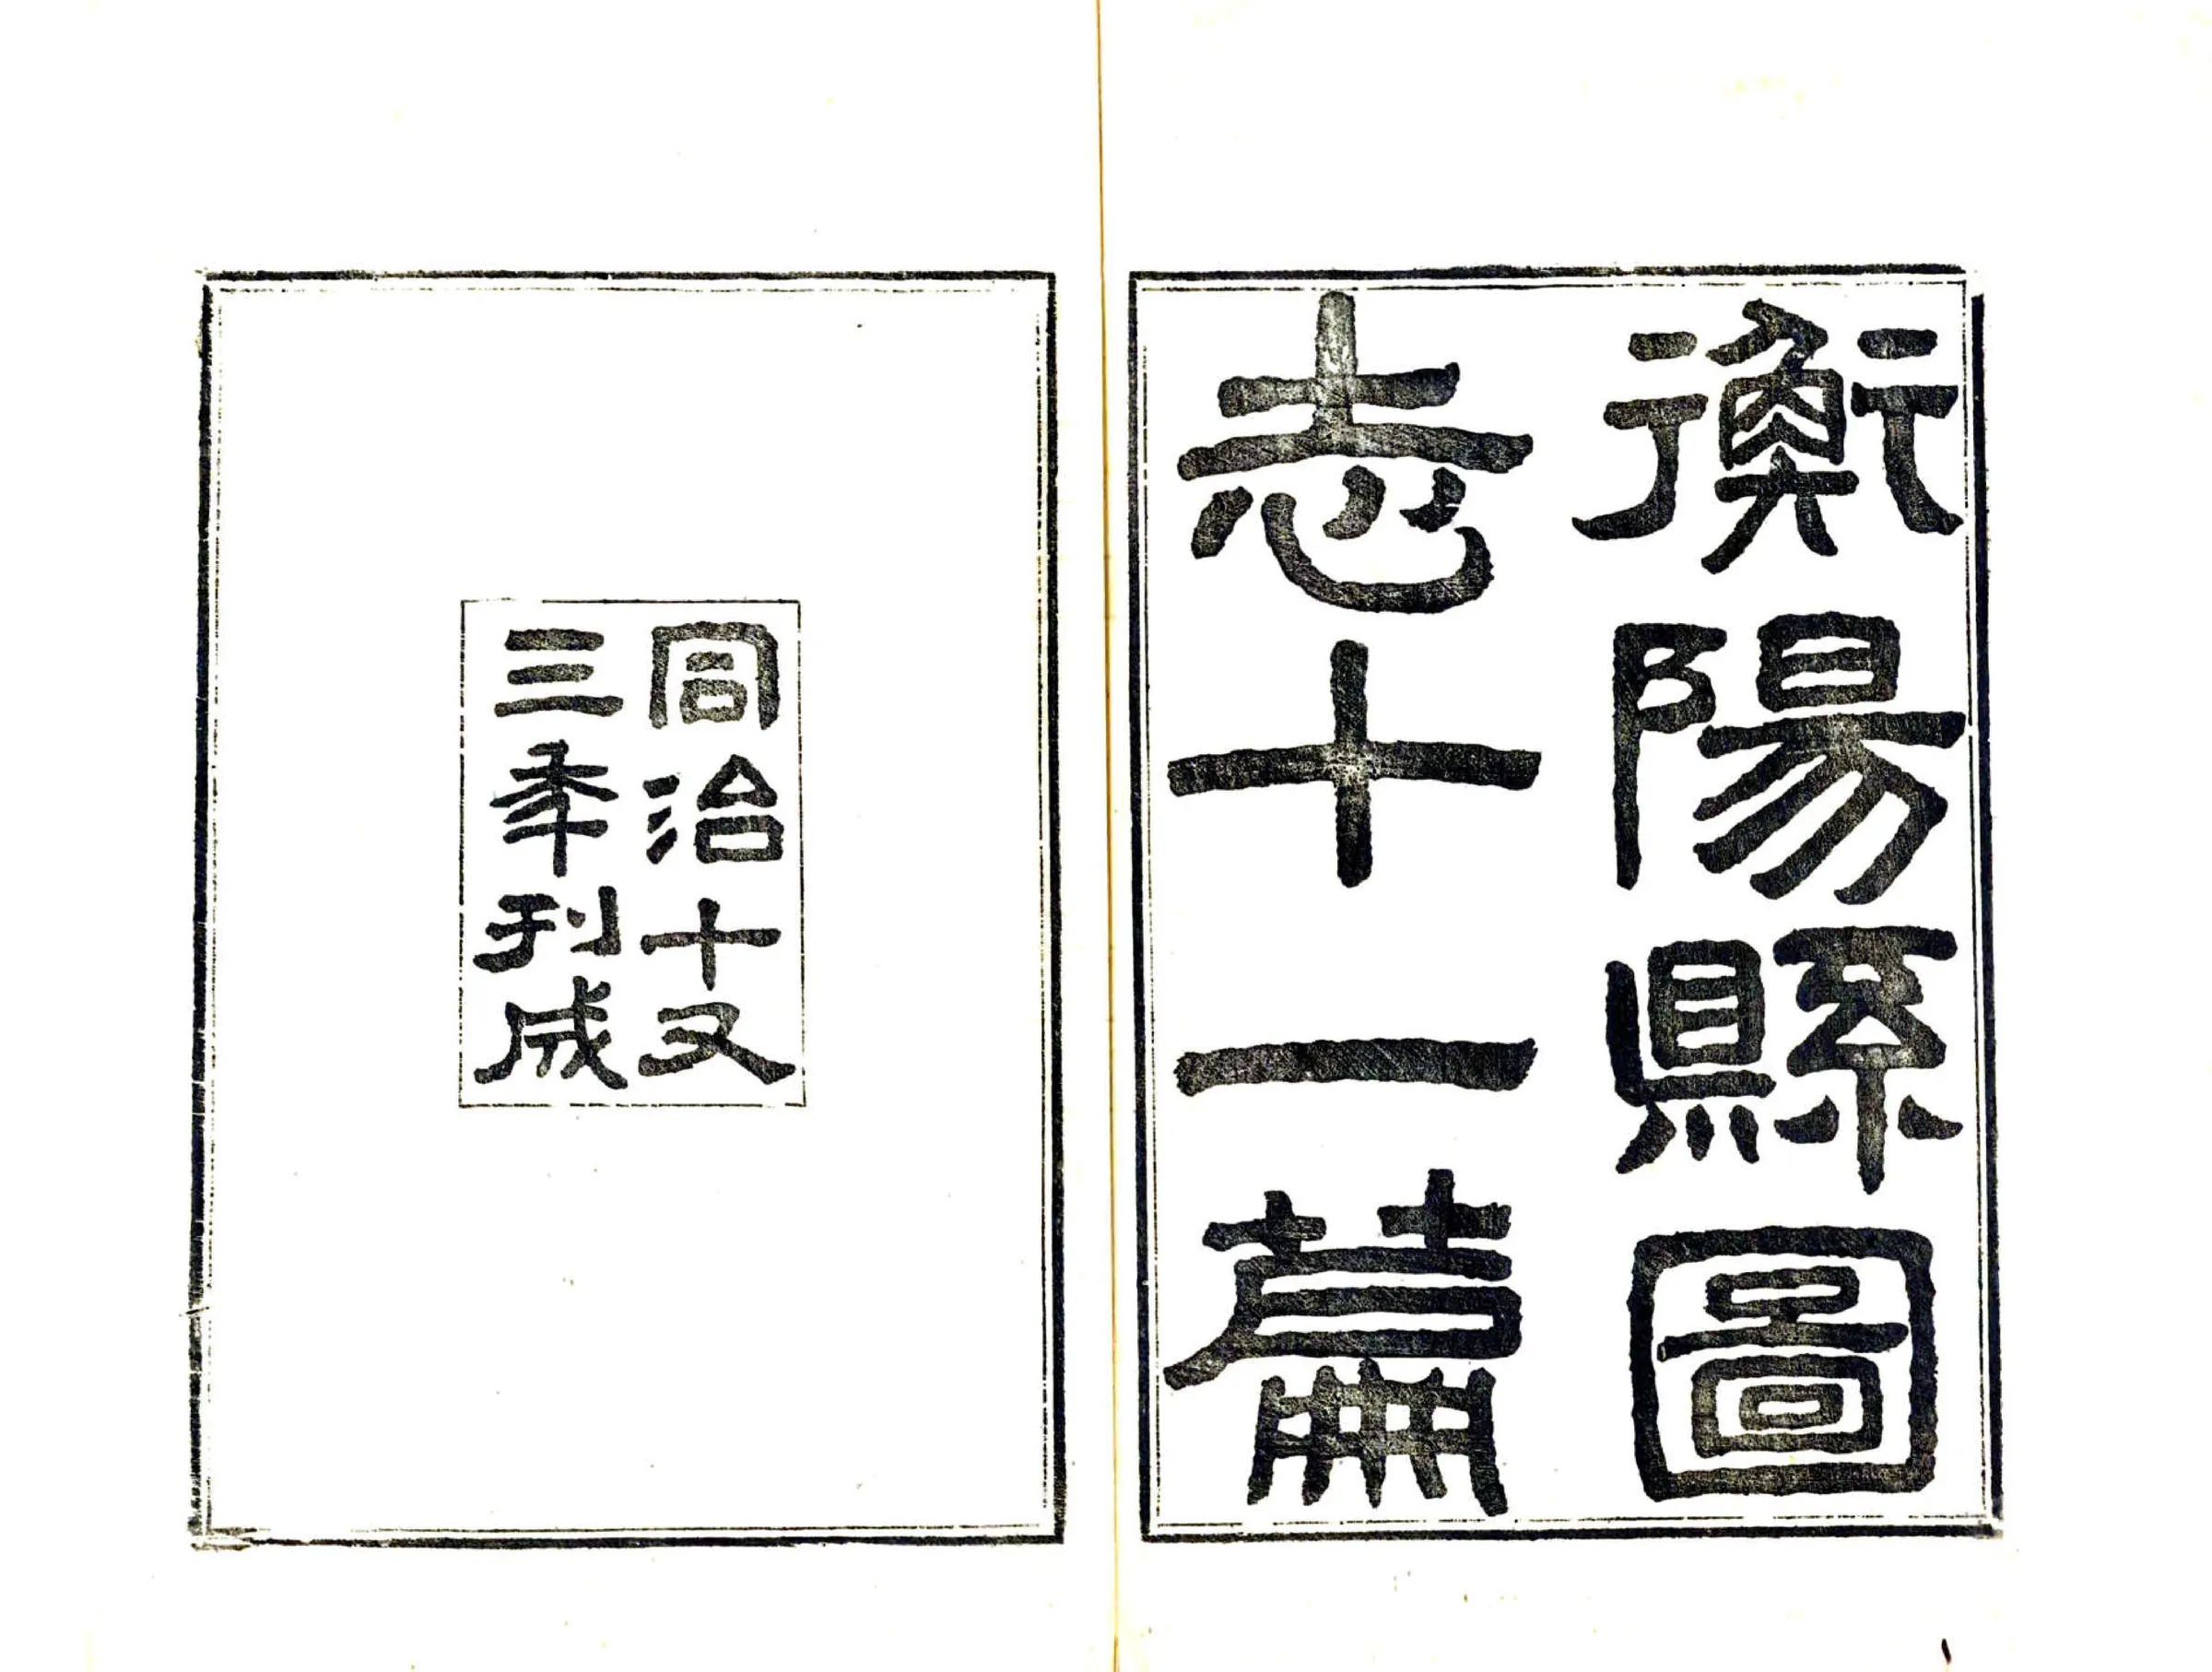 衡陽縣圖
志十一篇
同治十又
三年刊成